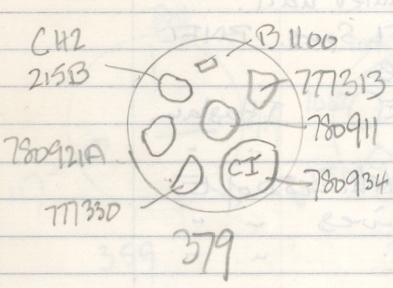 CH2
215B
B1100
777313
780911
780921A
CI
780934
777330
379